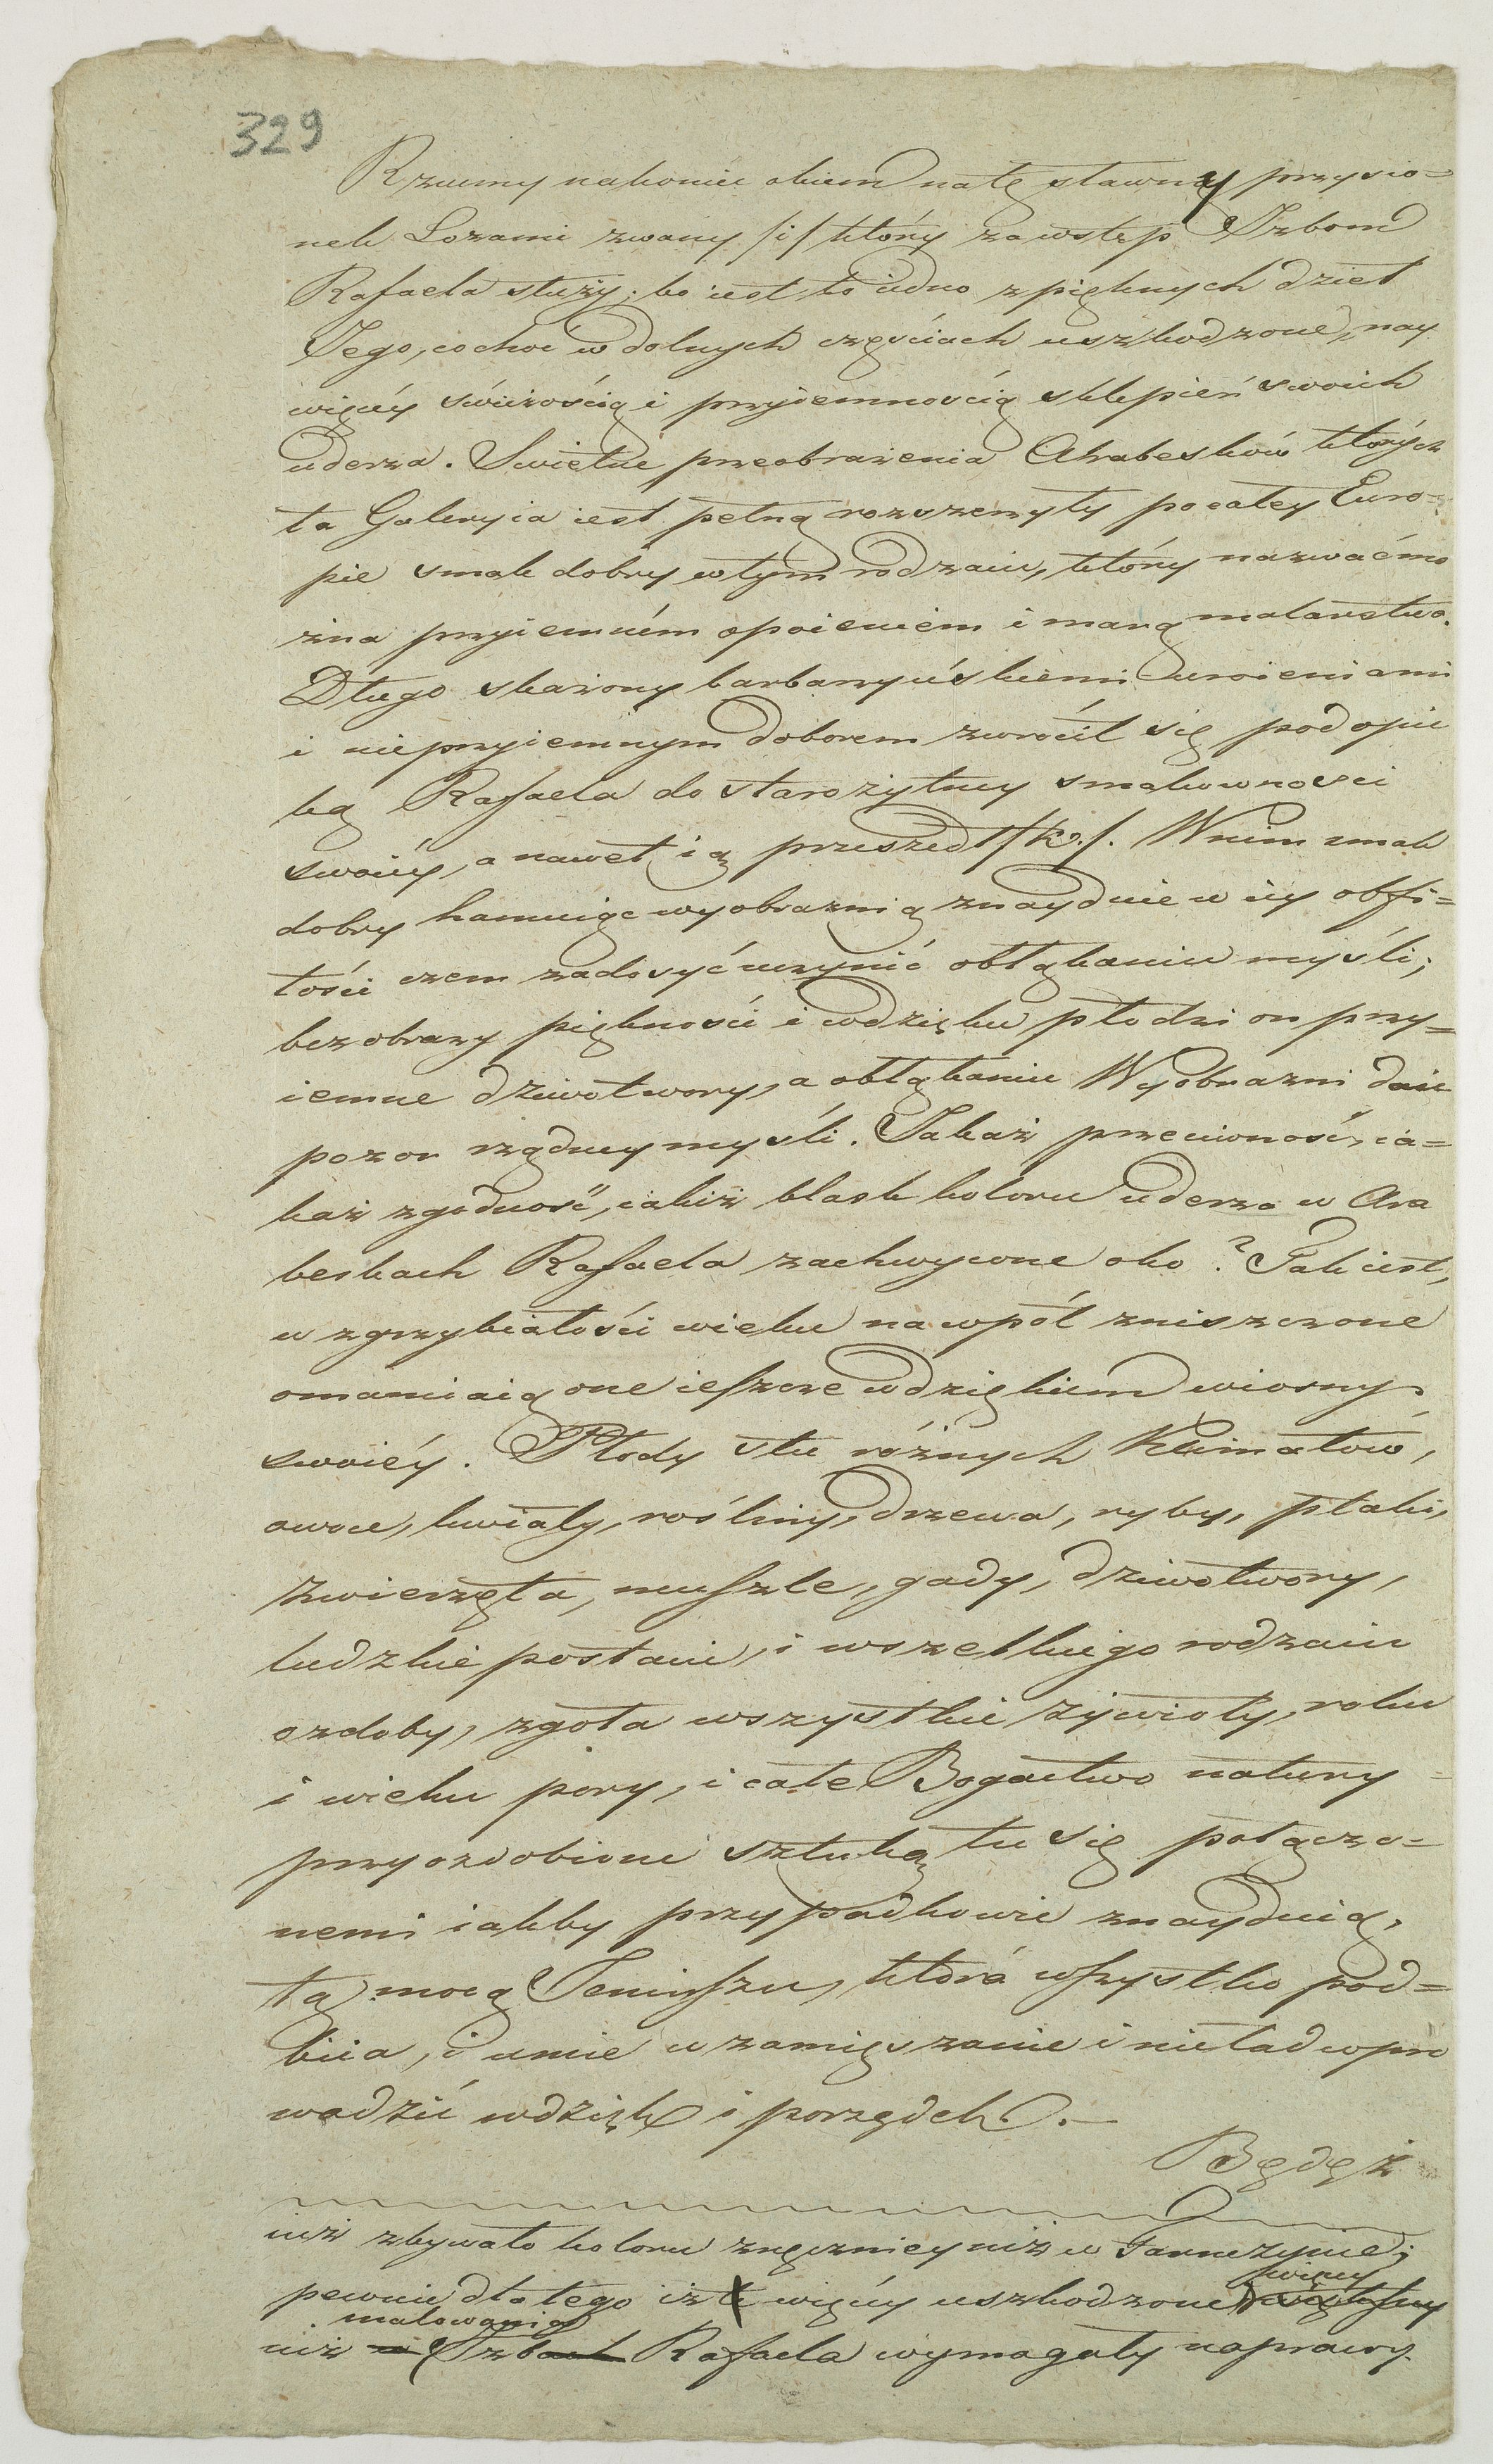 329
Rzućmy nakoniec okiem na tę sławny przysio=
nek Lożami zwany /i/ który za wstęp Izbom
Rafaela służy; bo iest to iedno z pięknych dzieł
Jego, co choc w dolnych częściach uszkodzone, nay
więcéy świeżością i przyiemnością sklepień swoich
uderza. Swietne przeobrażenia Arabesków których
ta Galeryia iest pełną rozszerzyły po całey Euro=
pie smak dobry w tym rodzaiu, który nazwać mo
żna przyiemném opoieniem i marą malarstwa.
Długo skażony barbaryiúskiemi uroieniami
i nieprzyiemnym doborem zwrócił się pod opie
ką Rafaela do starożytney smakowności
swoiéy, a nawet ią przeszedł /k./. W nim smak
dobry hamuiąc wyobraźnią znayduie w iey obfi=
tości czem zadosyć uczynić obłąkaniu myśli;
bez obrazy piękności i wdzięku płodzi on przy=
iemne dziwotwory, a obłąkaniu Wyobraźni daie
pozor rządney myśli. Jakaż przeciwność, ia=
każ zgodność, iakiż blask koloru uderza w Ara
beskach Rafaela zachwycone oko? Tak iest,
w zgrzybiałości wieku nawpół zniszczone
omamiaią one ieszcze wdziękiem wiosny
swoiéy. Płody stu różnych Klimatów,
owoce, kwiaty, rośliny, drzewa, ryby, ptaki,
zwierzęta, muszle, gady, dziwotwory,
ludzkie postacie, i wszelkiego rodzaiu
ozdoby, zgoła wszystkie żywioły, roku
i wieku pory, i całe Bogactwo natury
przyozdobione sztuką tu się połączo=
nemi iakby przypadkowie znayduią,
tą mocą Jeniuszu, która wszystko pod=
biia, i umie w zamięszanie i nieład wpro
wadzić wdzięk i porządek. —
Będęż
iuż zbywało koloru zręczniey niż w Farnezynie;
pewnie dla tego iż więcéy uszkodzone więcey
malowania
niż Izbach Rafaela wymagały naprawy.